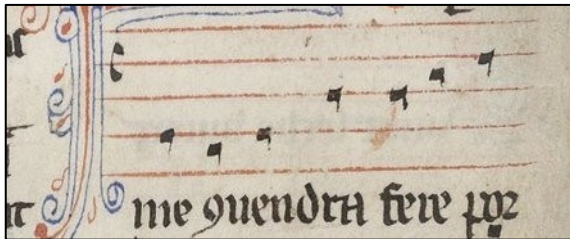 me ꝯuendra fere por